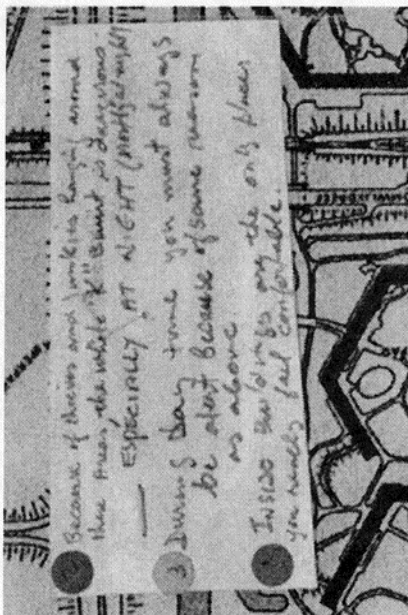 Because of thieves and junkies hangin' around
these areas the white "K" Buurt is dangerous
— ESPECIALLY AT NIGHT
3 During Day time you must always
be alert because of same reason
as above.
INSIDE Buildings are the only places
you rarely feel comfortable.